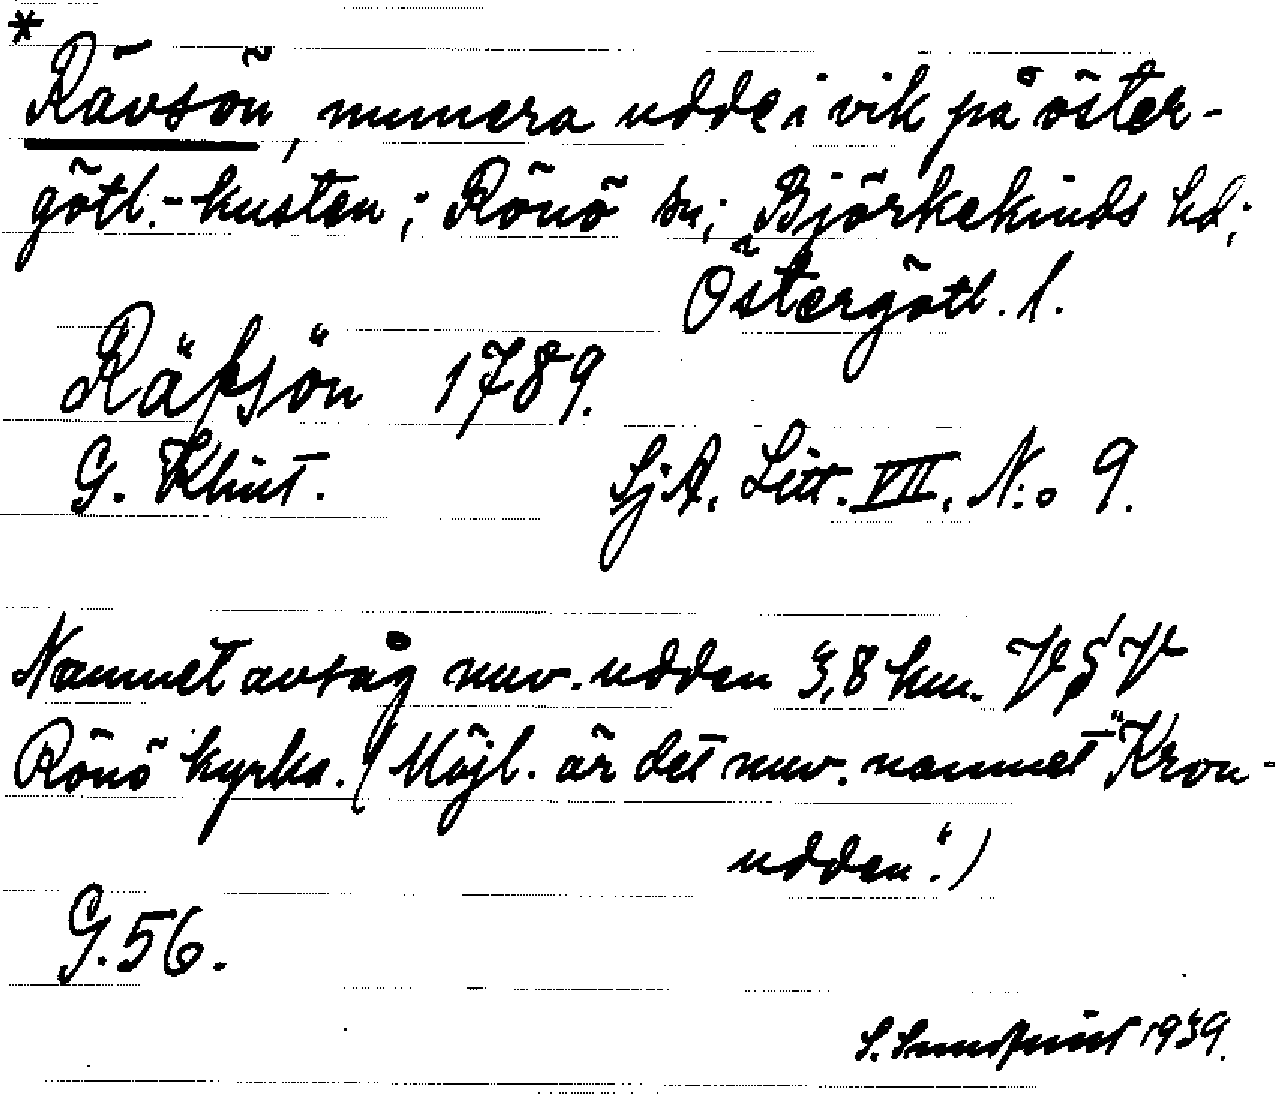 *
Rävsön, numera udde i vik på öster-
götl.-kusten; Rönö sn; Björkekinds hd;
Östergötl. l.
Räfsön 1789.
G. Klint. SjA. Litt. VII. N:o 9.
Namnet avsåg nuv. udden 3,8 km. VSV
Rönö kyrka. (Möjl. är det nuv. namnet "Kron-
udden".)
G. 56.
S. 1939.